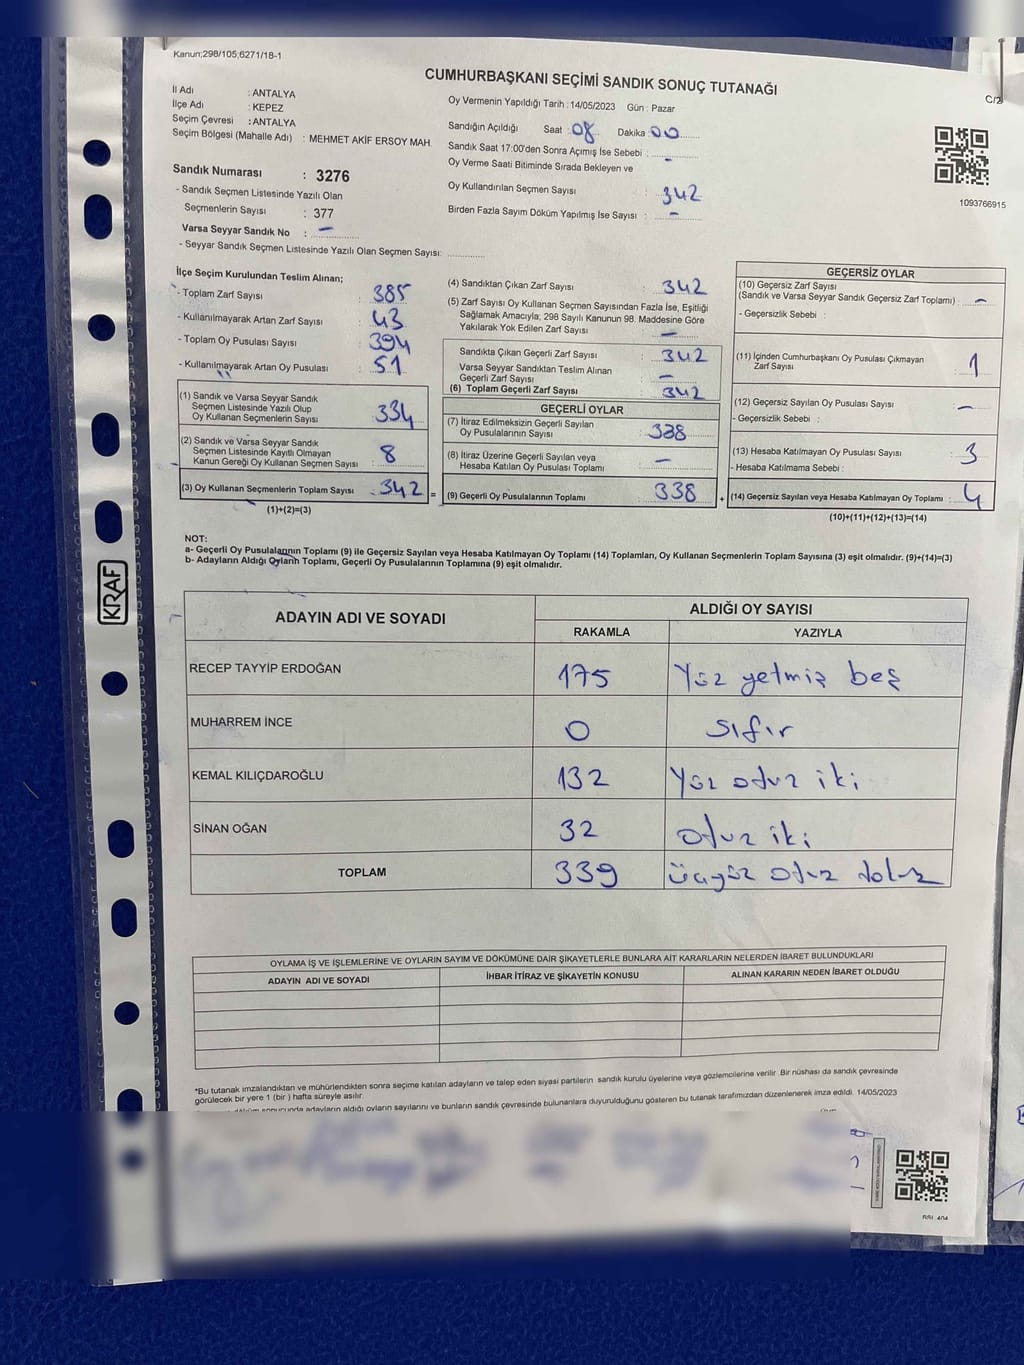 Kanun;298/105;6271/18-1
CUMHURBAŞKANI SEÇİMİ SANDIK SONUÇ TUTANAĞI
C/2
İl Adı : ANTALYA
İlçe Adı : KEPEZ
Seçim Çevresi : ANTALYA
Seçim Bölgesi (Mahalle Adı) : MEHMET AKİF ERSOY MAH.
Sandık Numarası : 3276
- Sandık Seçmen Listesinde Yazılı Olan
Seçmenlerin Sayısı : 377
Varsa Seyyar Sandık No : -
- Seyyar Sandık Seçmen Listesinde Yazılı Olan Seçmen Sayısı:
Oy Vermenin Yapıldığı Tarih : 14/05/2023 Gün : Pazar
Sandığın Açıldığı Saat : 08 Dakika : 00
Sandık Saat 17:00'den Sonra Açımış İse Sebebi : -
Oy Verme Saati Bitiminde Sırada Bekleyen ve
Oy Kullandırılan Seçmen Sayısı : 342
Birden Fazla Sayım Döküm Yapılmış İse Sayısı : -
1093766915
İlçe Seçim Kurulundan Teslim Alınan;
- Toplam Zarf Sayısı : 385
- Kullanılmayarak Artan Zarf Sayısı : 43
- Toplam Oy Pusulası Sayısı : 394
- Kullanılmayarak Artan Oy Pusulası : 51
(1) Sandık ve Varsa Seyyar Sandık
Seçmen Listesinde Yazılı Olup
Oy Kullanan Seçmenlerin Sayısı : 334
(2) Sandık ve Varsa Seyyar Sandık
Seçmen Listesinde Kayıtlı Olmayan
Kanun Gereği Oy Kullanan Seçmen Sayısı : 8
(3) Oy Kullanan Seçmenlerin Toplam Sayısı : 342 =
(1)+(2)=(3)
(4) Sandıktan Çıkan Zarf Sayısı : 342
(5) Zarf Sayısı Oy Kullanan Seçmen Sayısından Fazla İse, Eşitliği
Sağlamak Amacıyla; 298 Sayılı Kanunun 98. Maddesine Göre
Yakılarak Yok Edilen Zarf Sayısı : -
Sandıkta Çıkan Geçerli Zarf Sayısı : 342
Varsa Seyyar Sandıktan Teslim Alınan
Geçerli Zarf Sayısı : -
(6) Toplam Geçerli Zarf Sayısı : 342
GEÇERLİ OYLAR
(7) İtiraz Edilmeksizin Geçerli Sayılan
Oy Pusulalarının Sayısı : 338
(8) İtiraz Üzerine Geçerli Sayılan veya
Hesaba Katılan Oy Pusulası Toplamı : -
(9) Geçerli Oy Pusulalarının Toplamı : 338 +
GEÇERSİZ OYLAR
(10) Geçersiz Zarf Sayısı
(Sandık ve Varsa Seyyar Sandık Geçersiz Zarf Toplamı) : -
- Geçersizlik Sebebi :
(11) İçinden Cumhurbaşkanı Oy Pusulası Çıkmayan
Zarf Sayısı : 1
(12) Geçersiz Sayılan Oy Pusulası Sayısı : -
- Geçersizlik Sebebi :
(13) Hesaba Katılmayan Oy Pusulası Sayısı : 3
- Hesaba Katılmama Sebebi :
(14) Geçersiz Sayılan veya Hesaba Katılmayan Oy Toplamı : 4
(10)+(11)+(12)+(13)=(14)
NOT:
a- Geçerli Oy Pusulalarının Toplamı (9) ile Geçersiz Sayılan veya Hesaba Katılmayan Oy Toplamı (14) Toplamları, Oy Kullanan Seçmenlerin Toplam Sayısına (3) eşit olmalıdır. (9)+(14)=(3)
b- Adayların Aldığı Oyların Toplamı, Geçerli Oy Pusulalarının Toplamına (9) eşit olmalıdır.
ADAYIN ADI VE SOYADI
ALDIĞI OY SAYISI
RAKAMLA YAZIYLA
RECEP TAYYİP ERDOĞAN 175 Yüz yetmiş beş
MUHARREM İNCE 0 sıfır
KEMAL KILIÇDAROĞLU 132 Yüz otuz iki
SİNAN OĞAN 32 otuz iki
TOPLAM 339 üçyüz otuz dokuz
OYLAMA İŞ VE İŞLEMLERİNE VE OYLARIN SAYIM VE DÖKÜMÜNE DAİR ŞİKAYETLERLE BUNLARA AİT KARARLARIN NELERDEN İBARET BULUNDUKLARI
ADAYIN ADI VE SOYADI İHBAR İTİRAZ VE ŞİKAYETİN KONUSU ALINAN KARARIN NEDEN İBARET OLDUĞU
*Bu tutanak imzalandıktan ve mühürlendikten sonra seçime katılan adayların ve talep eden siyasi partilerin sandık kurulu üyelerine veya gözlemcilerine verilir. Bir nüshası da sandık çevresinde
görülecek bir yere 1 (bir) hafta süreyle asılır.
sonucunda adayların aldığı oyların sayılarını ve bunların sandık çevresinde bulunanlara duyurulduğunu gösteren bu tutanak tarafımızdan düzenlenerek imza edildi. 14/05/2023
KRAF